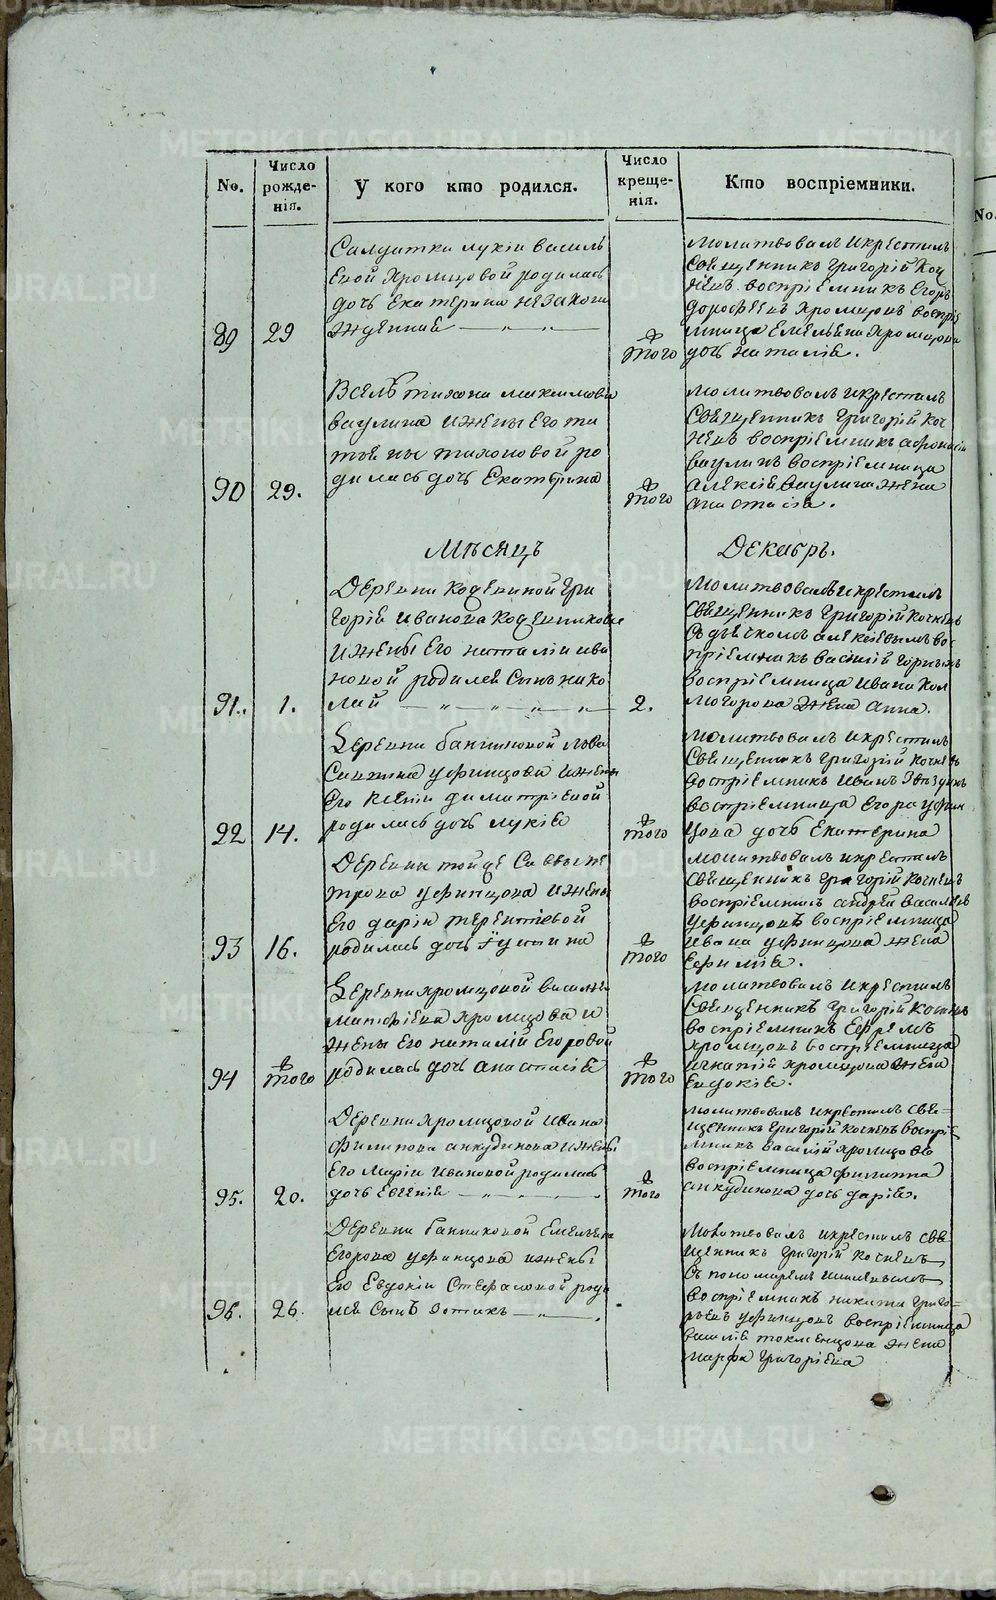 No.
Число рожденія.
У кого кто родился.
Число крещенія.
Кто воспріемники.
Салдатки лукіи василь
евой Хромцовой родилась
дочь Екатерина незакон
89 29 нжденная
тогѡ
молитвовалъ и крестилъ
Священникъ григорій Коч
невъ воспріемникъ Егоръ
дорофѣевъ Хромцовъ воспріе
мница Емельяна Хромцова
дочь наталія.
Вселѣ тихона максимова
ваулина и жены его та
тьяны тихоновой ро
90 29. дилась дочь Екатерина
того
молитвовалъ и крестилъ
Священникъ григорій Коч
невъ воспріемникъ афонасій
ваулинъ воспріемница
алексія ваулина жена
анастасія.
Мѣсяцъ Декабрь.
Деревни Кодинной гри
горія иванова
и жены его наталіи ива
новой родился сынъ нико
91. 1. лай 2.
молитвовалъ и крестилъ
Священникъ григорій Кочневъ
воспріемникъ василій
воспріемница ивана Кол
могорова жена анна.
Деревни банниковой
уфинцова и жены
его Ксеніи димитріевой
22 14. родилась дочь лукія
того
молитвовалъ и крестилъ
Священникъ григорій Кочневъ
воспріемникъ иванъ
воспріемница Егора уфин
цова дочь Екатерина
Деревни тойже Саввы пе
трова уфинцова и жены
его даріи терентіевой
93 16. родилась дочь Іустина
того
молитвовалъ и крестилъ
Священникъ григорій Кочневъ
воспріемникъ андрей васильевъ
уфинцовъ воспріемница
ивана уфинцова жена
Ефимія.
Деревни хромцовой василья
матфіева хромцова и
жены его наталіи Егоровой
94 того родилась дочь анастасія
того
молитвовалъ и крестилъ
Священникъ григорій Кочневъ
воспріемникъ Ефремъ
хромцовъ воспріемница
игнатія хромцова жена
Евдокія.
Деревни хромцовой ивана
филипова анкудинова и жены
его маріи ивановой родилась
95. 20. дочь Евгенія
того
молитвовалъ и крестилъ свя-
щенникъ григорій Кочневъ воспріе
мникъ василій хромцовъ
воспріемница филиппа
анкудинова дочь дарія.
Деревни банниковой Емельяна
Егорова уфинцова и жены
его Евдокіи Стефановой роди
96. 26. лся сынъ Фотикъ
молитвовалъ и крестилъ свя
щенникъ григорій Кочневъ
съ пономаремъ
воспріемникъ никита григо-
рьевъ уфинцовъ воспріемница
василія токменцова жена
марфа григоріева
METRIKI.GASO-URAL.RU